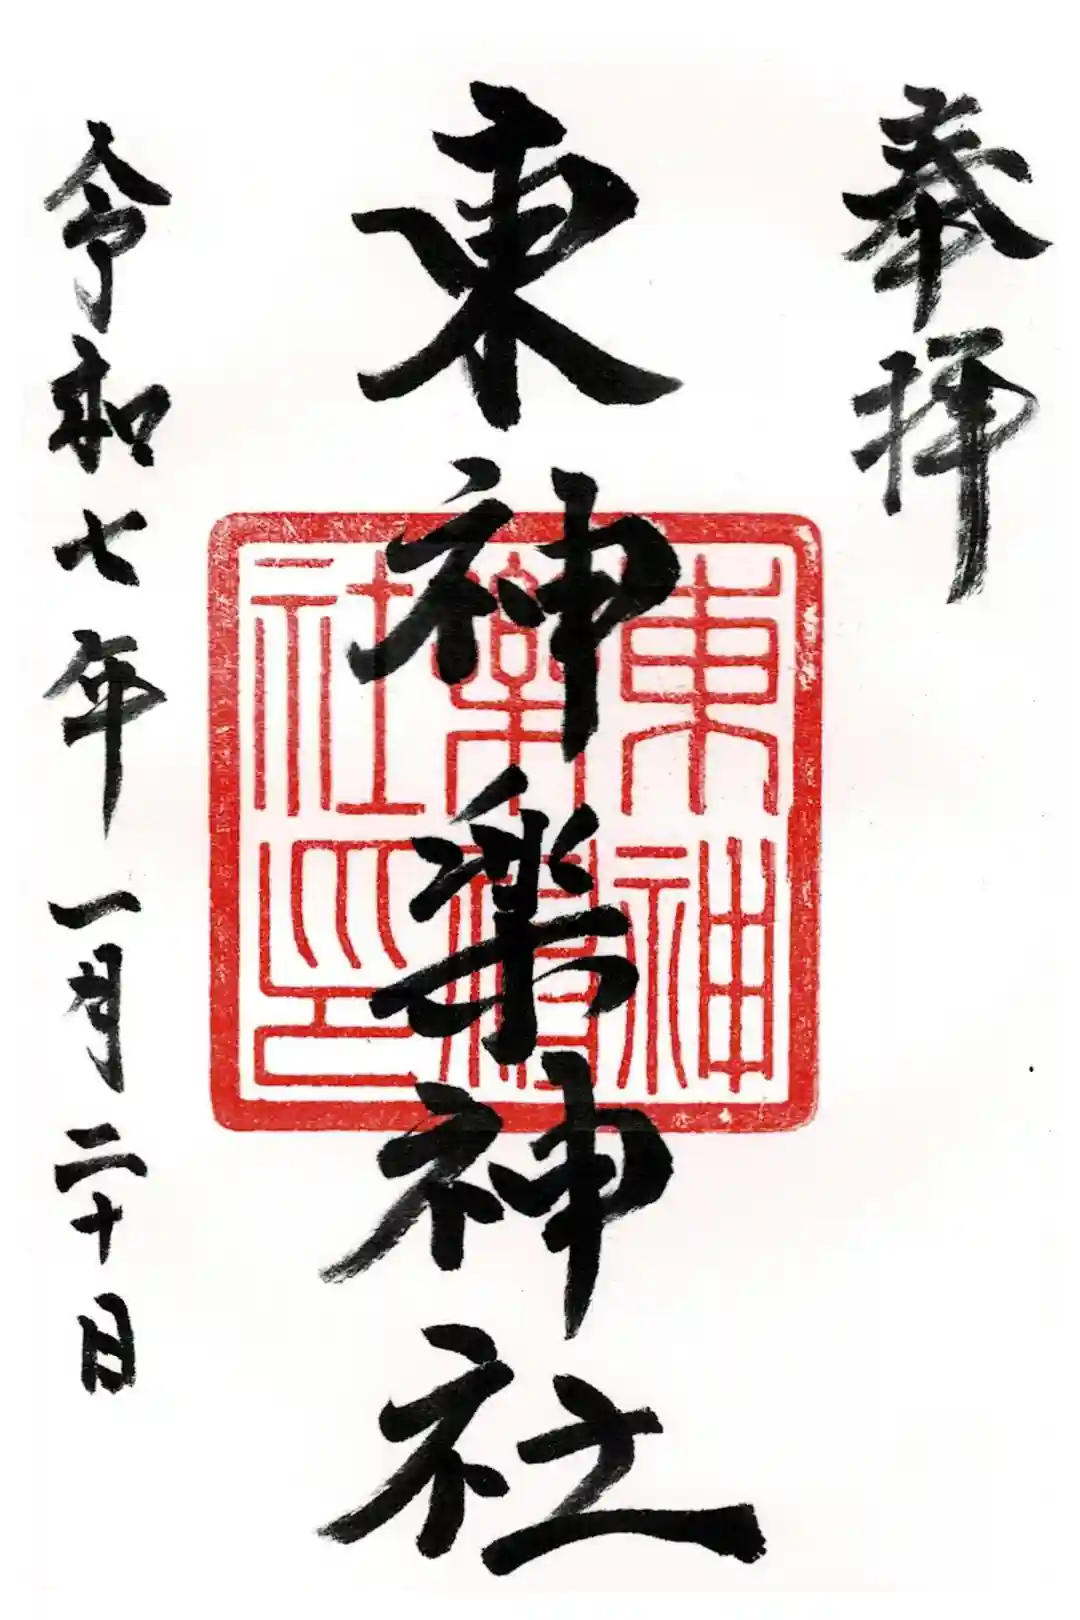 奉拝
東神楽神社
東神
樂神
社印
令和七年一月二十日